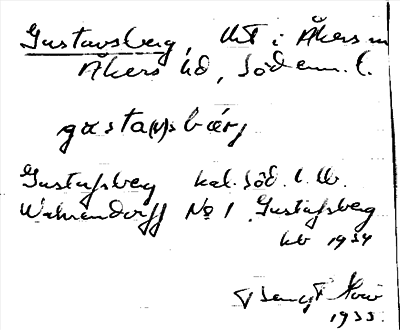 Gustavsberg, utt i Åkers sn
Åkers hd, Söderm. l.
gɑsta(v)sbærj
Gustafsberg kal. Söd. l.
Wahrendorff No 1 Gustafsberg
kb 1934
Bengt
1933.